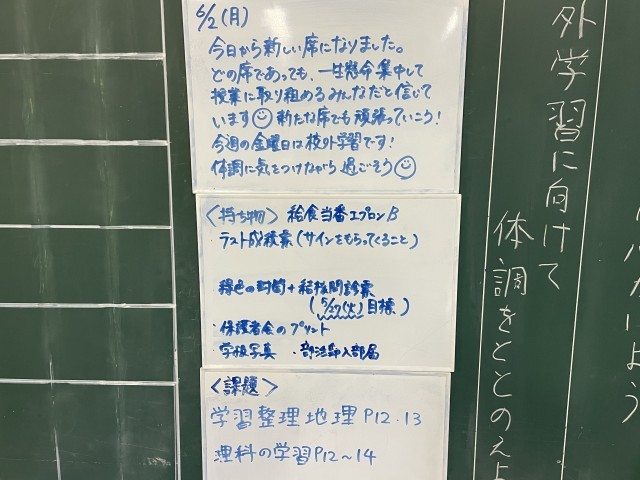 6/2(月)
今日から新しい席になりました。
どの席であっても、一生懸命集中して
授業に取り組めるみんなだと信じて
います☺ 新たな席でも頑張っていこう!
今週の金曜日は校外学習です!
体調に気をつけながら過ごそう☺
〈持ち物〉 給食当番エプロンB
・テスト成績表(サインをもらってくること)
緑色の封筒+結核問診票
(5/27(火)目標)
・保護者会のプリント
学校写真 ・部活動入部届
〈課題〉
学習整理地理P12.13
理科の学習P12~14
外学習に向けて
体調をととのえよ